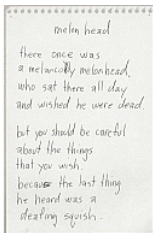 melon head
there once was
a melancolly melonhead,
who sat there all day
and wished he were dead.
but you should be careful
about the things
that you wish.
because the last thing
he heard was a
deafing squish.